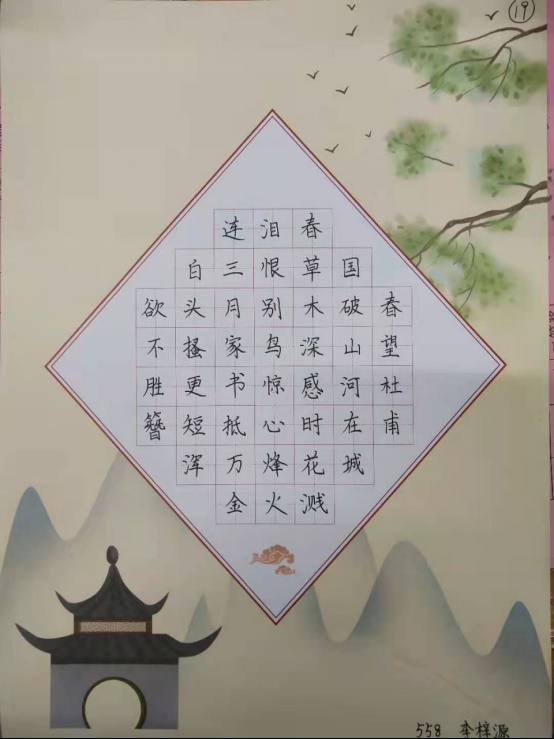 19
春望杜甫
国破山河在城
春草木深感时花溅
泪恨别鸟惊心烽火
连三月家书抵万金
白头搔更短浑
欲不胜簪
558 李梓源